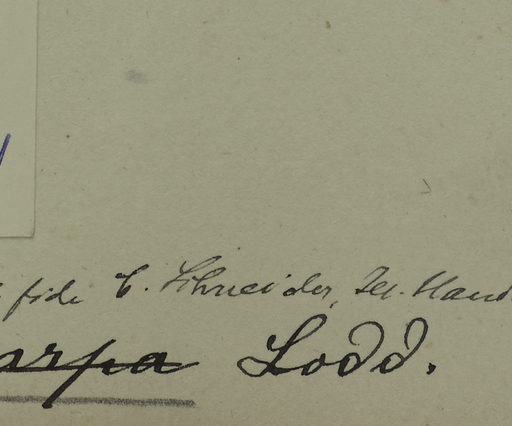 fide C. Schneider, Ill. Hand
arpa Lodd.